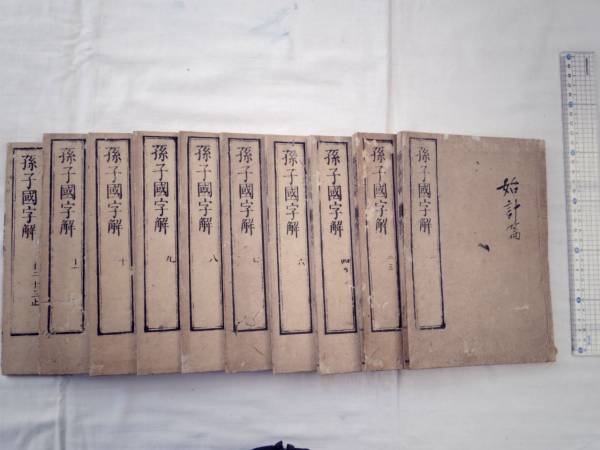 孫子國字解 一
始計篇
孫子國字解 二三
孫子國字解 四五
孫子國字解 六
孫子國字解 七
孫子國字解 八
孫子國字解 九
孫子國字解 十
孫子國字解 十一
孫子國字解 十二 十三止